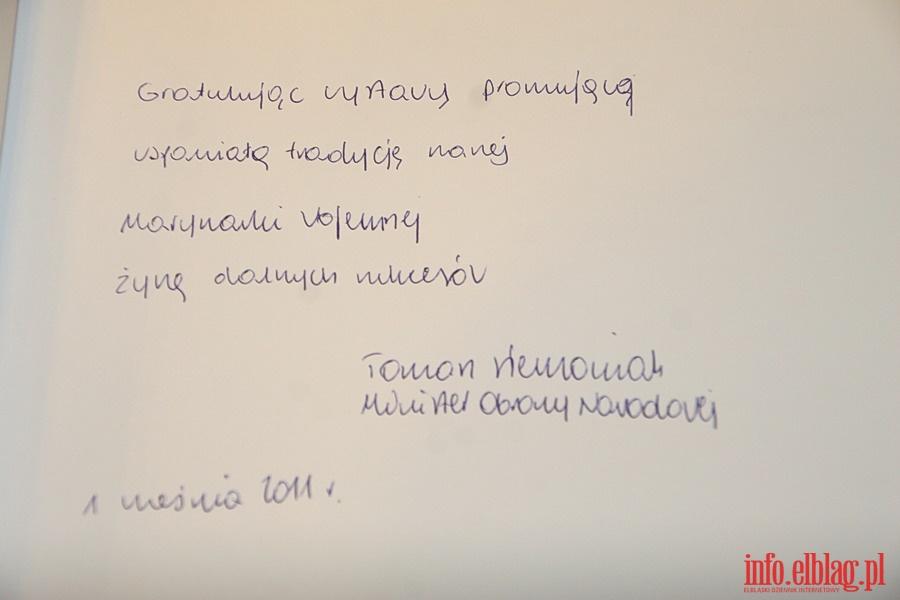 Gratulując wystawy promującą
wspaniałą tradycję naszej
Marynarki Wojennej
życzę dalszych sukcesów
Tomasz Siemoniak
Minister Obrony Narodowej
1 września 2011 r.
info.elblag.pl
ELBLĄSKI DZIENNIK INTERNETOWY